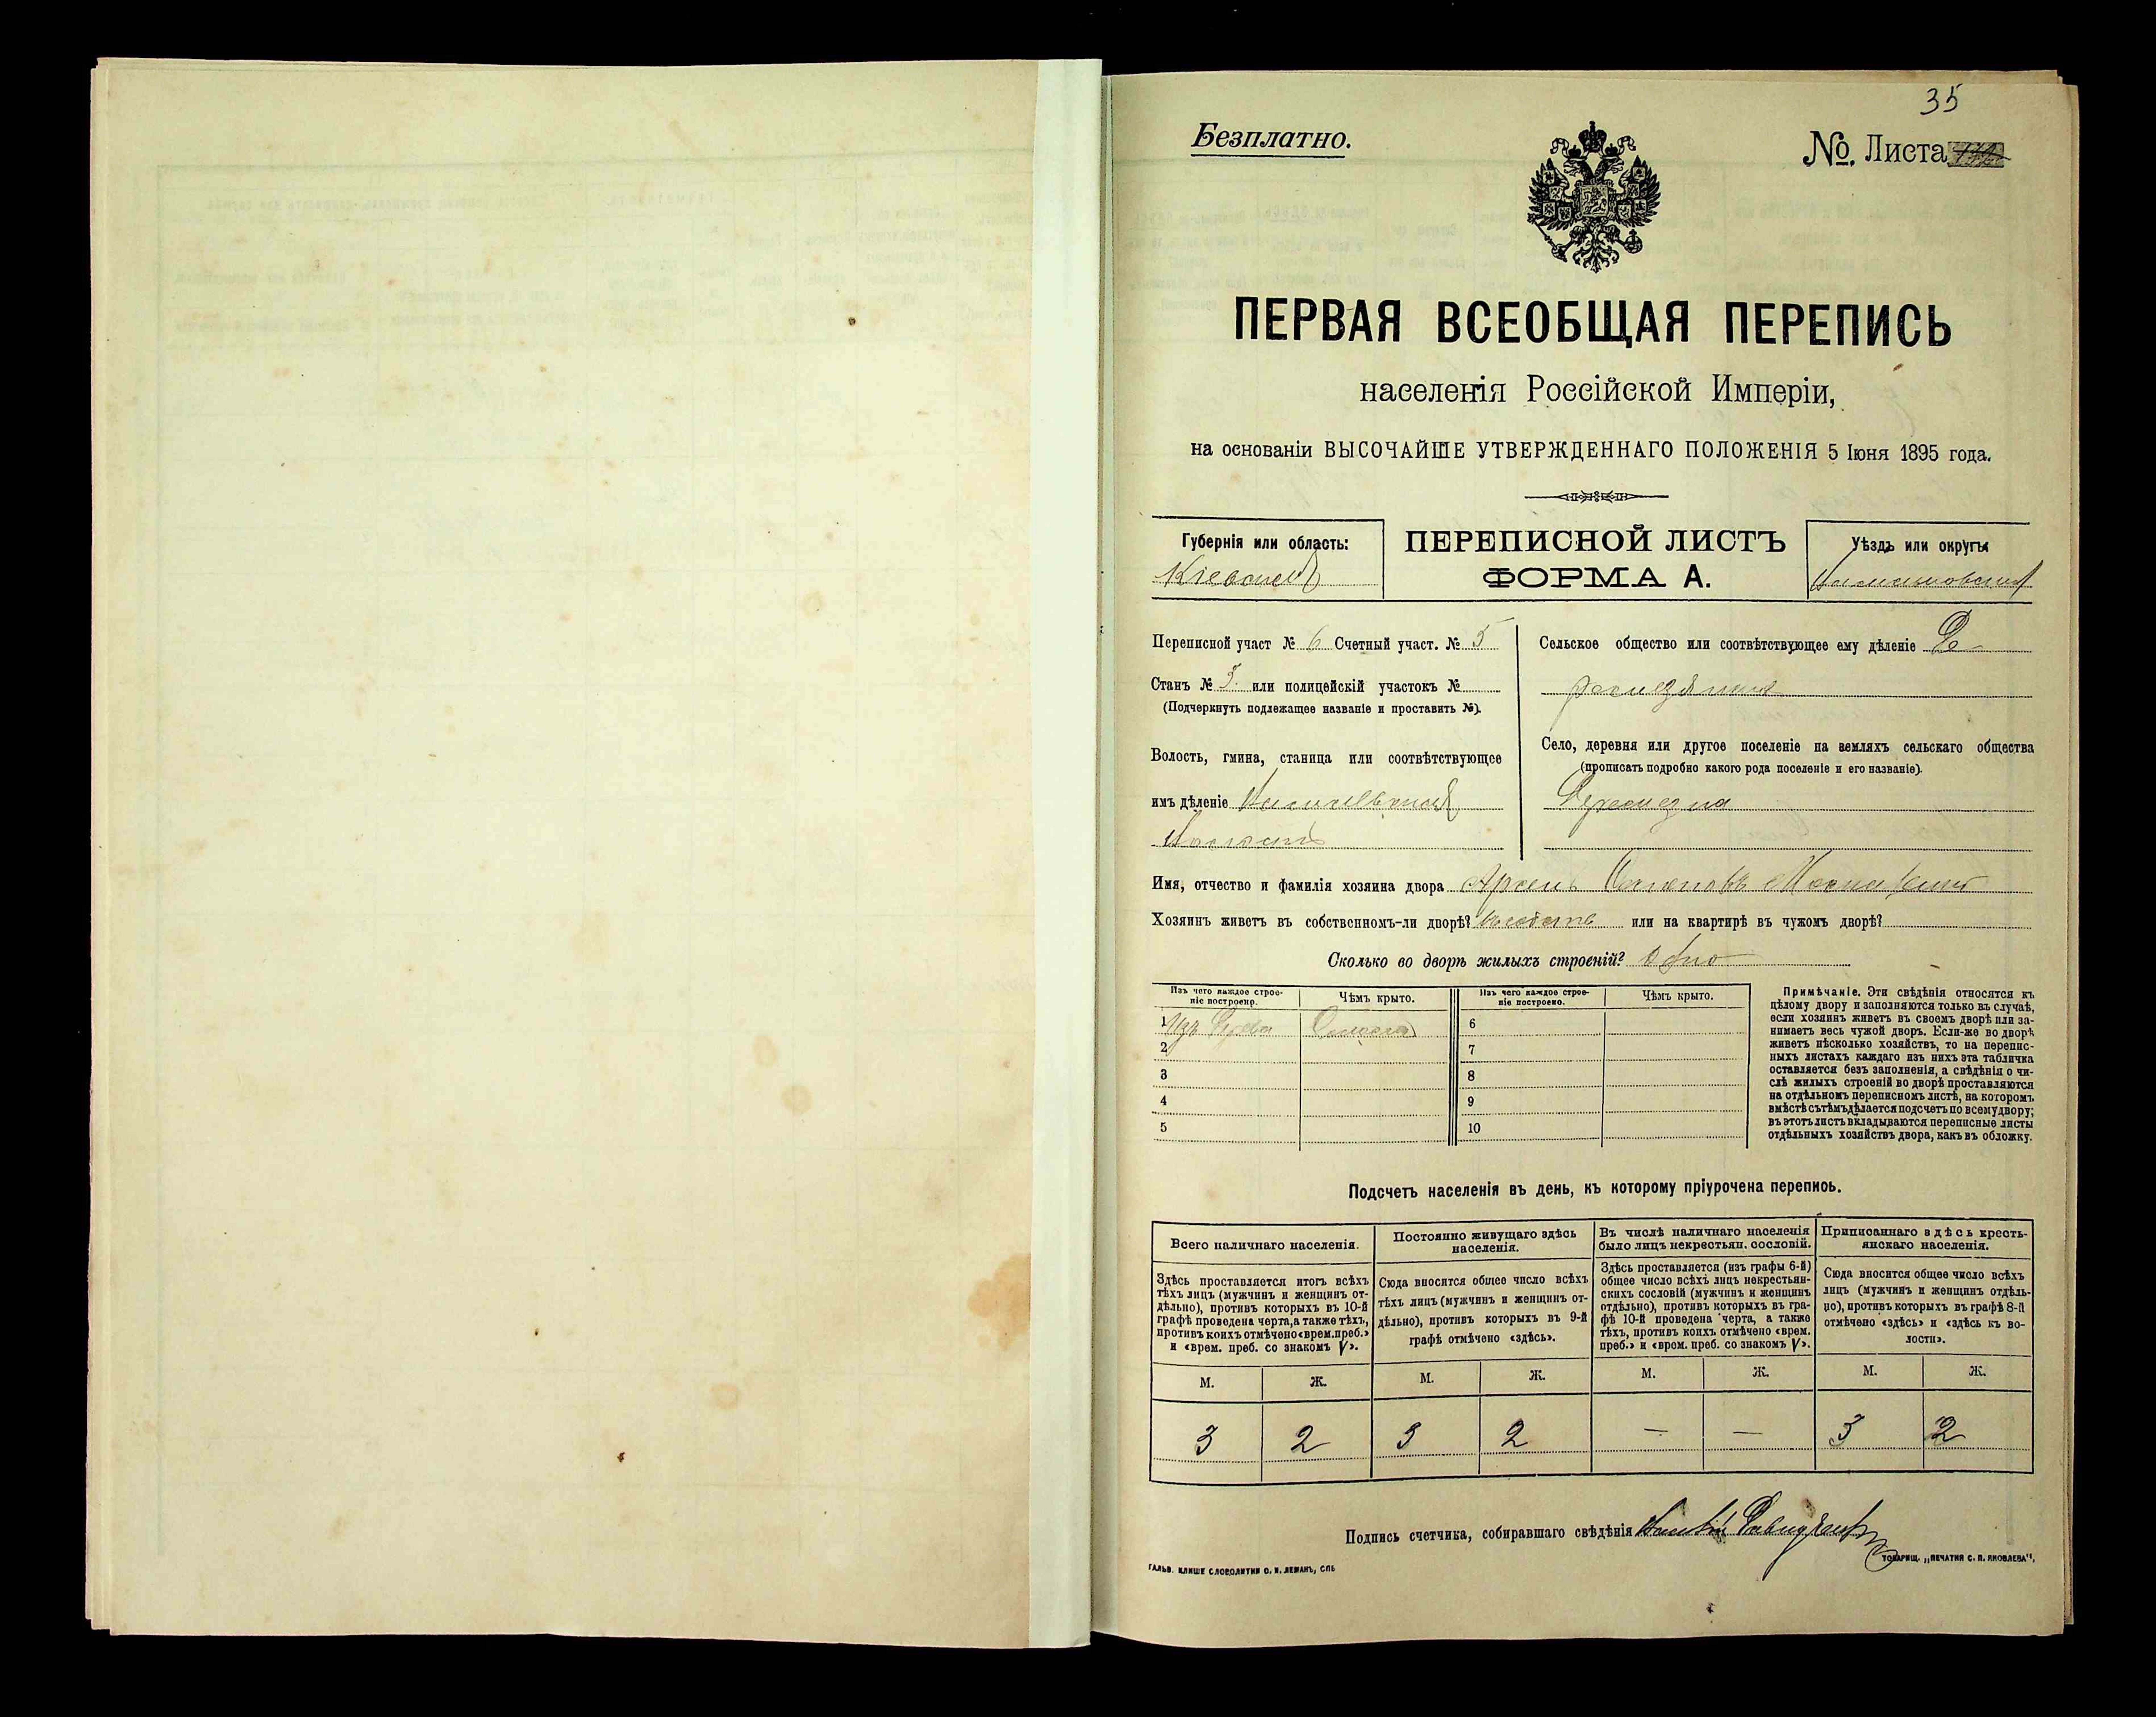 35
Безплатно.
№. Листа
ПЕРВАЯ ВСЕОБЩАЯ ПЕРЕПИСЬ
населенія Россійской Имперіи,
на основаніи ВЫСОЧАЙШЕ УТВЕРЖДЕННАГО ПОЛОЖЕНІЯ 5 Іюня 1895 года.
Губернія или область:
Кіевская
ПЕРЕПИСНОЙ ЛИСТЪ
ФОРМА А.
Уѣздъ или округъ:
Переписной участ № 6 Счетный участ. № 5
Станъ № 3. или полицейскій участокъ №
(Подчеркнуть подлежащее названіе и проставить №).
Волость, гмина, станица или соотвѣтствующее
имъ дѣленіе
Волость
Сельское общество или соотвѣтствующее ему дѣленіе
Село, деревня или другое поселеніе на земляхъ сельскаго общества
(прописать подробно какого рода поселеніе и его названіе).
Имя, отчество и фамилія хозяина двора
Хозяинъ живетъ въ собственномъ-ли дворѣ? или на квартирѣ въ чужомъ дворѣ?
Сколько во дворѣ жилыхъ строеній? Одно
Изъ чего каждое строе-
ніе построено.
Чѣмъ крыто.
Изъ чего каждое строе-
ніе построено.
Чѣмъ крыто.
1 Изъ дерева Соломою
2
3
4
5
6
7
8
9
10
Примѣчаніе. Эти свѣдѣнія относятся къ
цѣлому двору и заполняются только въ случаѣ,
если хозяинъ живетъ въ своемъ дворѣ или за-
нимаетъ весь чужой дворъ. Если-же во дворѣ
живетъ нѣсколько хозяйствъ, то на перепис-
ныхъ листахъ каждаго изъ нихъ эта табличка
оставляется безъ заполненія, а свѣдѣнія о чи-
слѣ жилыхъ строеній во дворѣ проставляются
на отдѣльномъ переписномъ листѣ, на которомъ
вмѣстѣ съ тѣмъ дѣлается подсчетъ по всему двору;
въ этотъ листъ вкладываются переписные листы
отдѣльныхъ хозяйствъ двора, какъ въ обложку.
Подсчетъ населенія въ день, къ которому пріурочена перепись.
Всего наличнаго населенія.
Здѣсь проставляется итогъ всѣхъ
тѣхъ лицъ (мужчинъ и женщинъ от-
дѣльно), противъ которыхъ въ 10-й
графѣ проведена черта, а также тѣхъ,
противъ коихъ отмѣчено «врем. преб.»
и «врем. преб. со знакомъ V».
Постоянно живущаго здѣсь
населенія.
Сюда вносится общее число всѣхъ
тѣхъ лицъ (мужчинъ и женщинъ от-
дѣльно), противъ которыхъ въ 9-й
графѣ отмѣчено «здѣсь».
Въ числѣ наличнаго населенія
было лицъ некрестьян. сословій.
Здѣсь проставляется (изъ графы 6-й)
общее число всѣхъ лицъ некрестьян-
скихъ сословій (мужчинъ и женщинъ
отдѣльно), противъ которыхъ въ гра-
фѣ 10-й проведена черта, а также
тѣхъ, противъ коихъ отмѣчено «врем.
преб.» и «врем. преб. со знакомъ V».
Приписаннаго здѣсь кресть-
янскаго населенія.
Сюда вносится общее число всѣхъ
лицъ (мужчинъ и женщинъ отдѣль-
но), противъ которыхъ въ графѣ 8-й
отмѣчено «здѣсь» и «здѣсь къ во-
лости».
М. Ж. М. Ж. М. Ж. М. Ж.
3 2 3 2 — — 3 2
Подпись счетчика, собиравшаго свѣдѣнія
ГАЛЬВ. КЛИШЕ СЛОВОЛИТНИ О. И. ЛЕМАНЪ, СПБ
ТОВАРИЩ. „ПЕЧАТНЯ С. П. ЯКОВЛЕВА“,